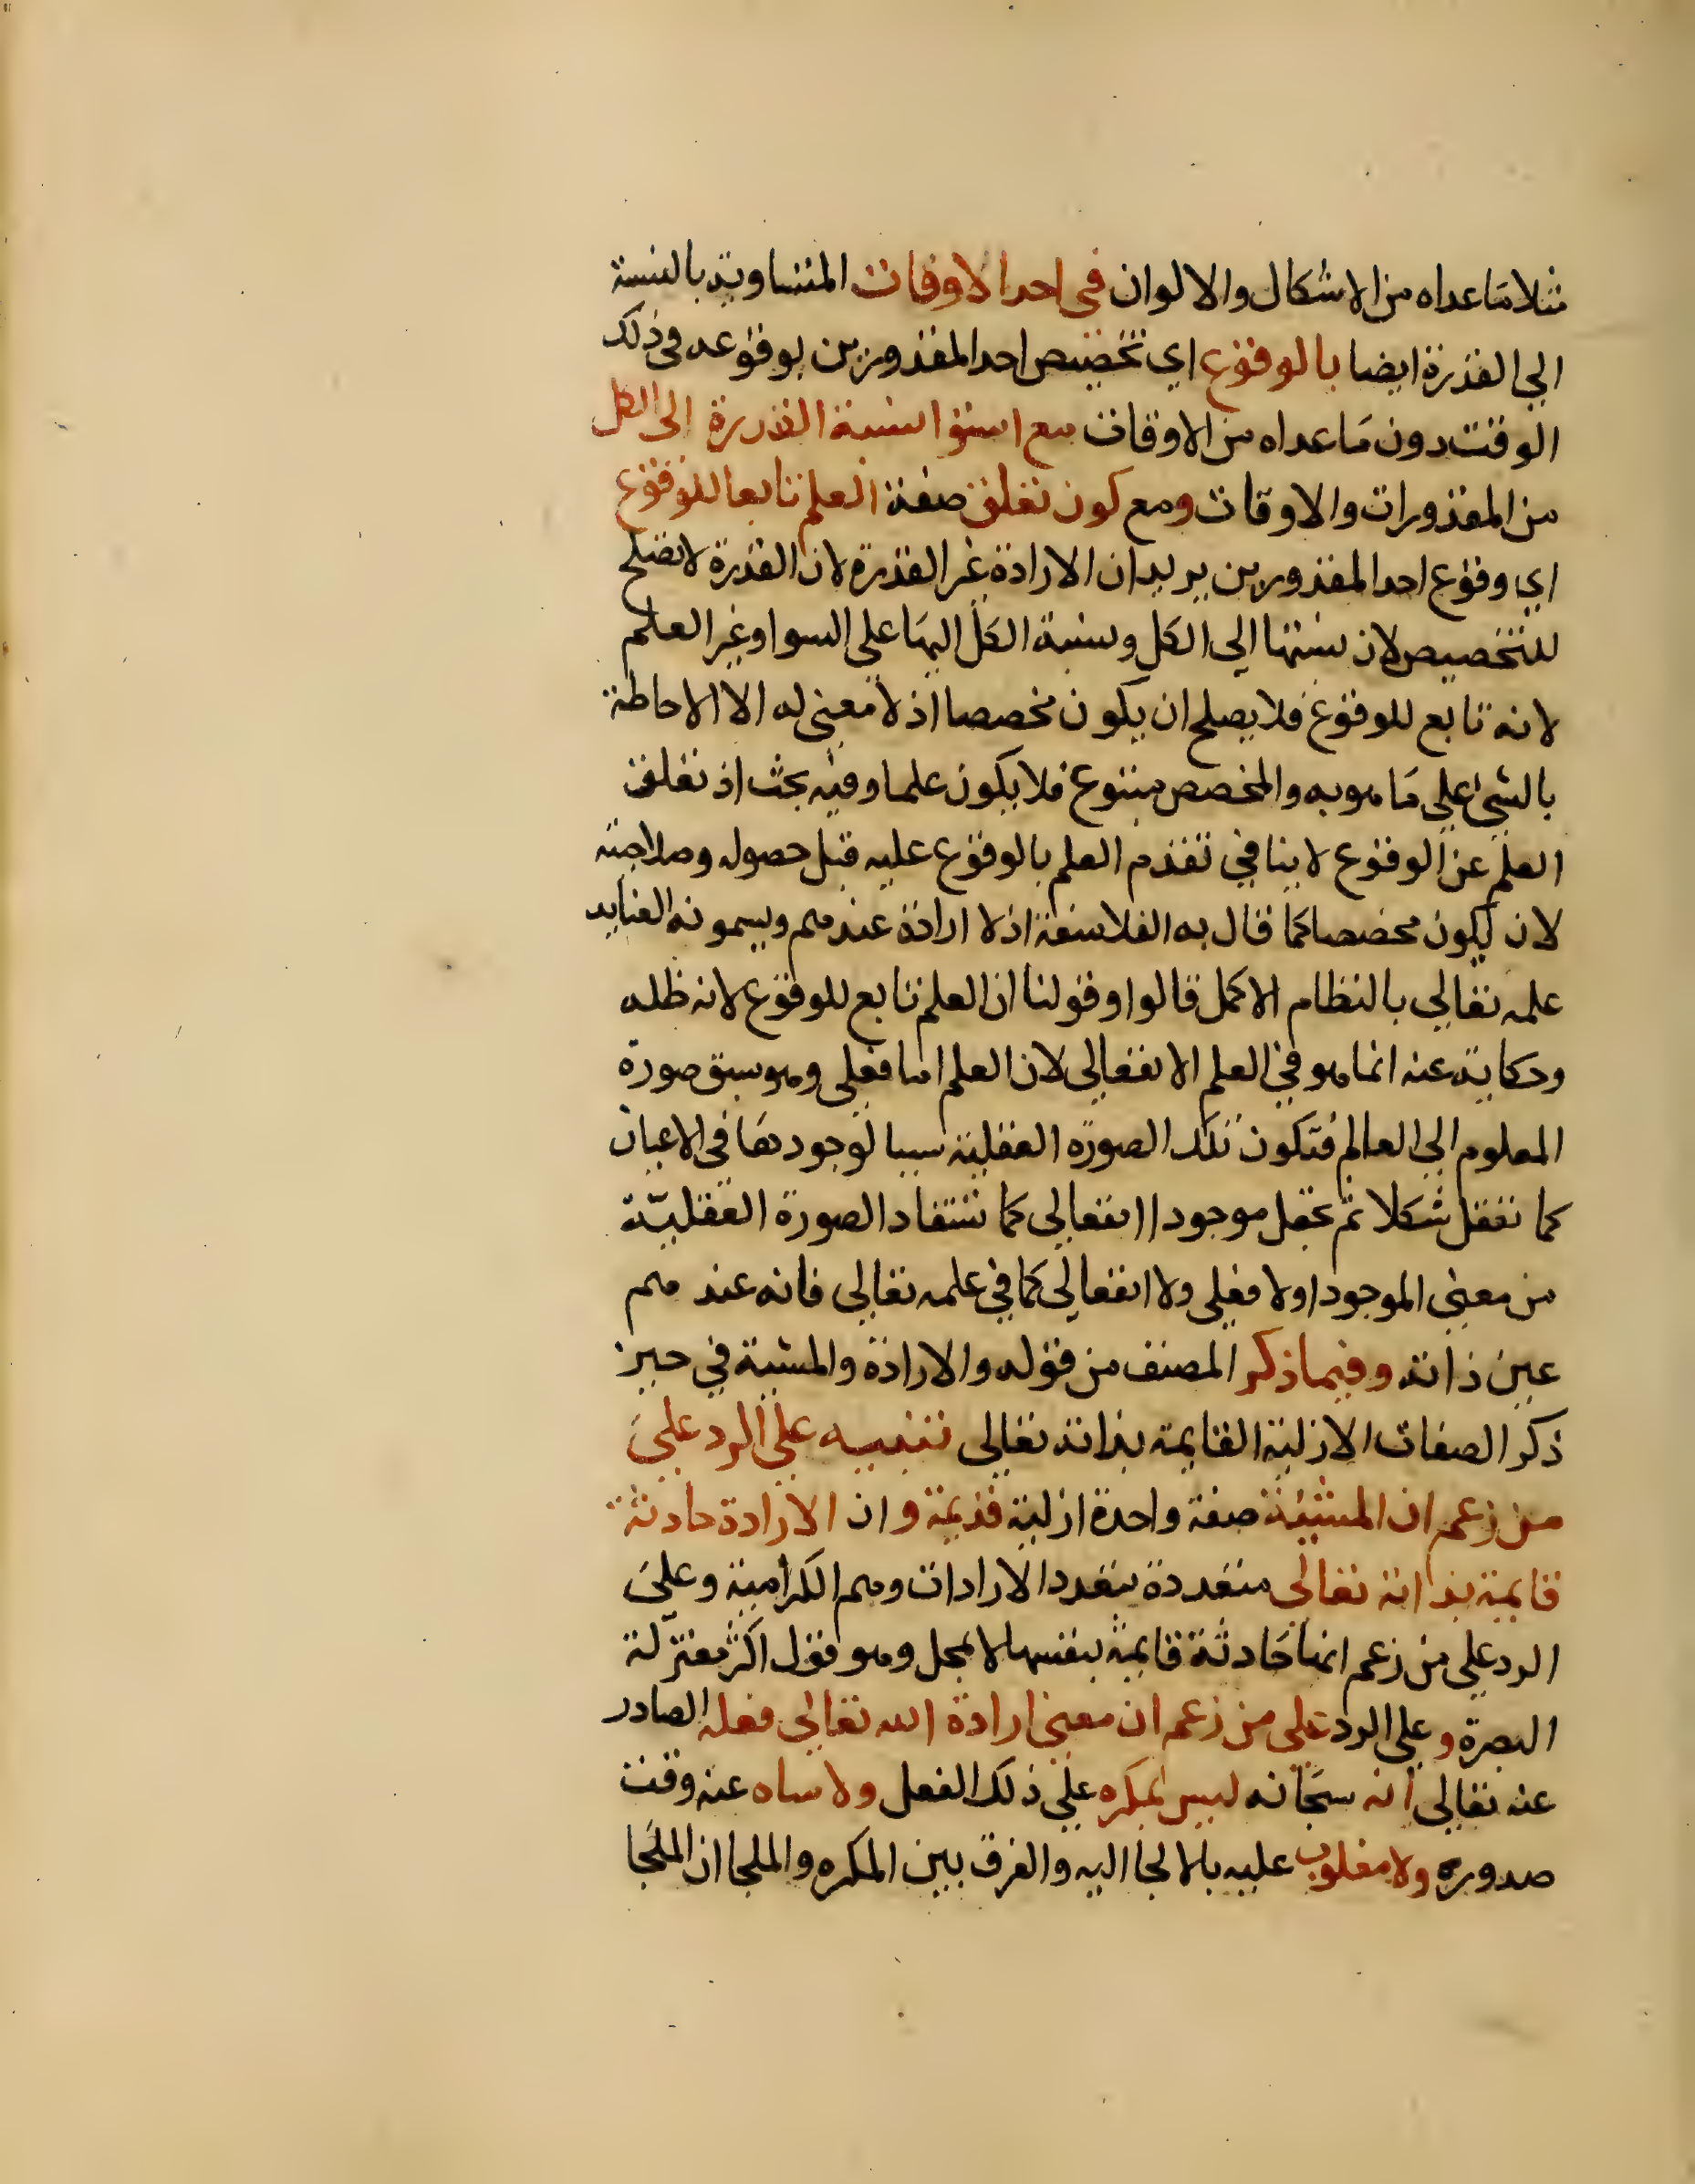 مثلا ما عداه من الاشكال والالوان في احد الاوقات المتساوية بالنسبة
الي القدرة ايضا بالوقوع اي تخصيص احد المقدورين بوقوعه في ذلك
الوقت دون ما عداه من الاوقات مع استوا نسبة القدرة الى الكل
من المقدورات والاوقات ومع كون تعلق صفة العلم تابعا للوقوع
اي وقوع احد المقدورين يريد ان الارادة غير القدرة لان القدرة لا تصلح
للتخصيص لان نسبتها الي الكل ونسبة الكل اليها علي السوا وغير العلم
لانه تابع للوقوع فلا يصلح ان يكون مخصصا اذ لا معني له الا الاحاطة
بالشئ علي ما هو به والمخصص متبوع فلا يكون علما وفيه بحث اذ تعلق
العلم عن الوقوع لا ينافي تقدم العلم بالوقوع عليه قبل حصوله وصلاحيته
لان يكون مخصصا كما قال به الفلاسفة اذ لا ارادة عندهم ويسمونه العنايه
علمه تعالي بالنظام الاكمل قالوا وقولنا ان العلم تابع للوقوع لانه ظله
وحكاية عنه انما هو في العلم الانفعالي لان العلم اما فعلي وهو سبق صورة
المعلوم الي العالم فتكون تلك الصورة العقلية سببا لوجودها في الاعيان
كما نعقل شكلا ثم نجعل موجودا انفعالي كما تستفاد الصورة العقلية
من معني الموجود اولا فعلي ولا انفعالي كما في علمه تعالي فانه عندهم
عين ذاته وفيما ذكر المصنف من قوله والارادة والمشية في حيز
ذكر الصفات الازلية القايمة بذاته تعالي تنبيه علي الرد علي
من زعم ان المشيئة صفة واحدة ازلية قديمة وان الارادة حادثة
قايمة بذاته تعالي متعددة بتعدد الارادات وهم الكرامية وعلي
الرد علي من زعم انها حادثة قايمة بنفسها لا بمحل وهو قول اكثر معتزلة
البصرة وعلي الرد علي من زعم ان معني ارادة الله تعالي فعله الصادر
عنه تعالي انه سبحانه ليس بمكره علي ذلك الفعل ولا ساه عنه وقت
صدوره ولا مغلوب عليه بالالجا اليه والفرق بين المكره والملجا ان الملجا